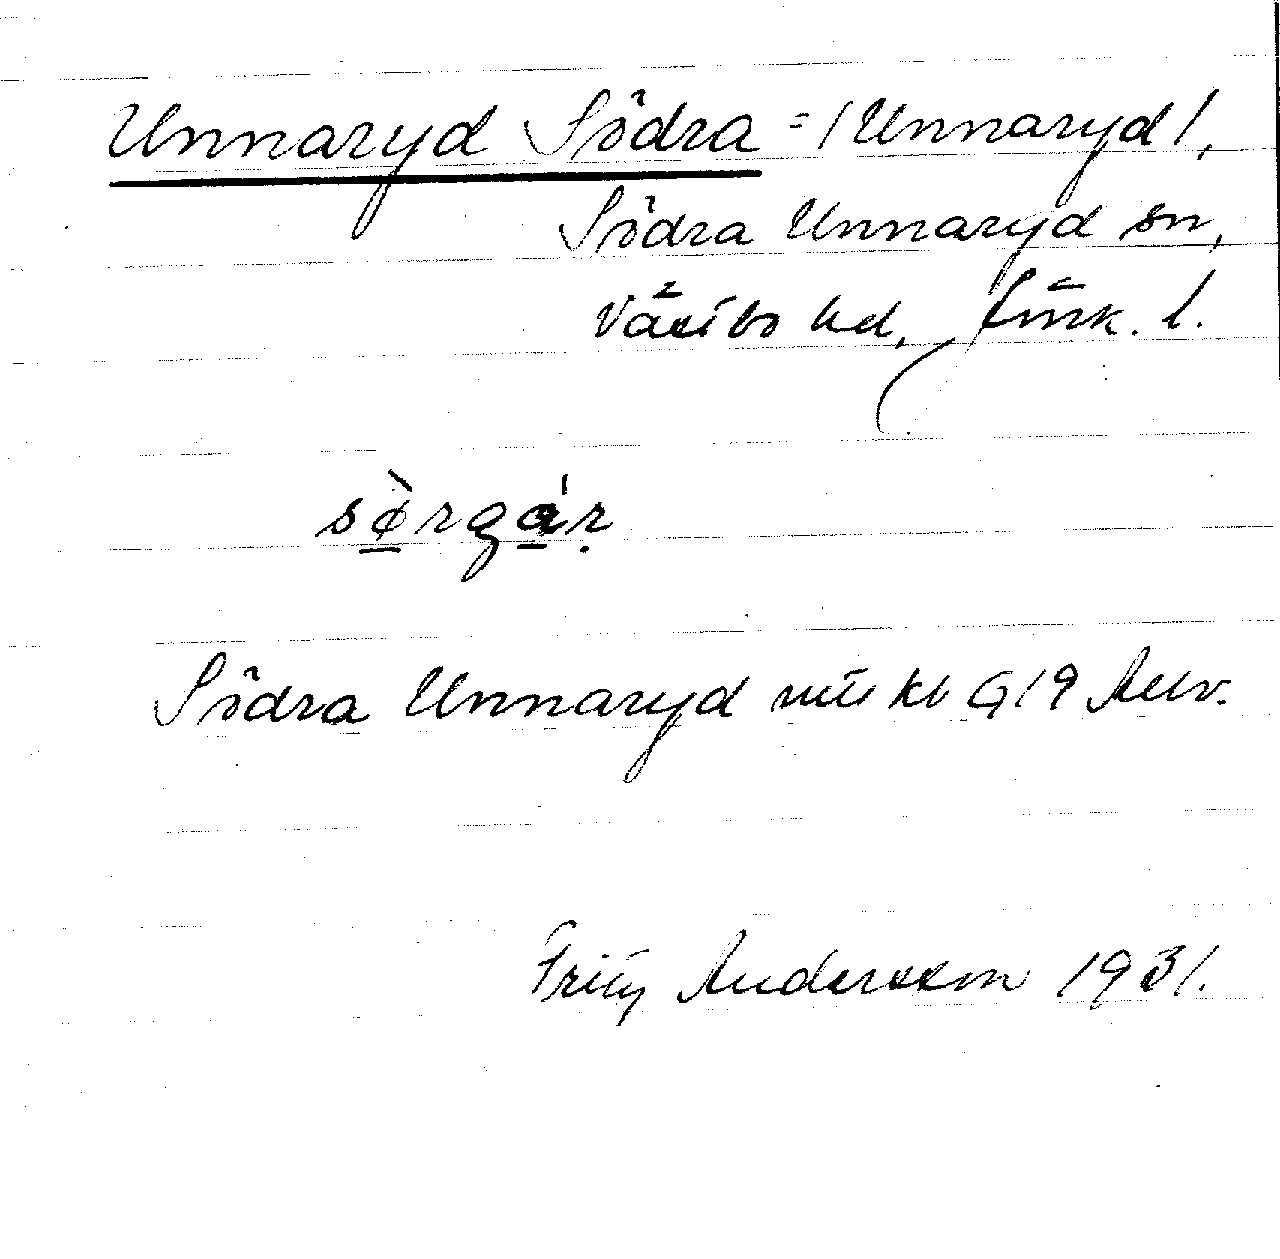 Unnaryd Södra = /Unnaryd/,
Södra Unnaryd sn,
Västbo hd, Jönk. l.
sø̀rgár
Södra Unnaryd mtl kb G19 Aelv.
Fritz Andersson 1931.